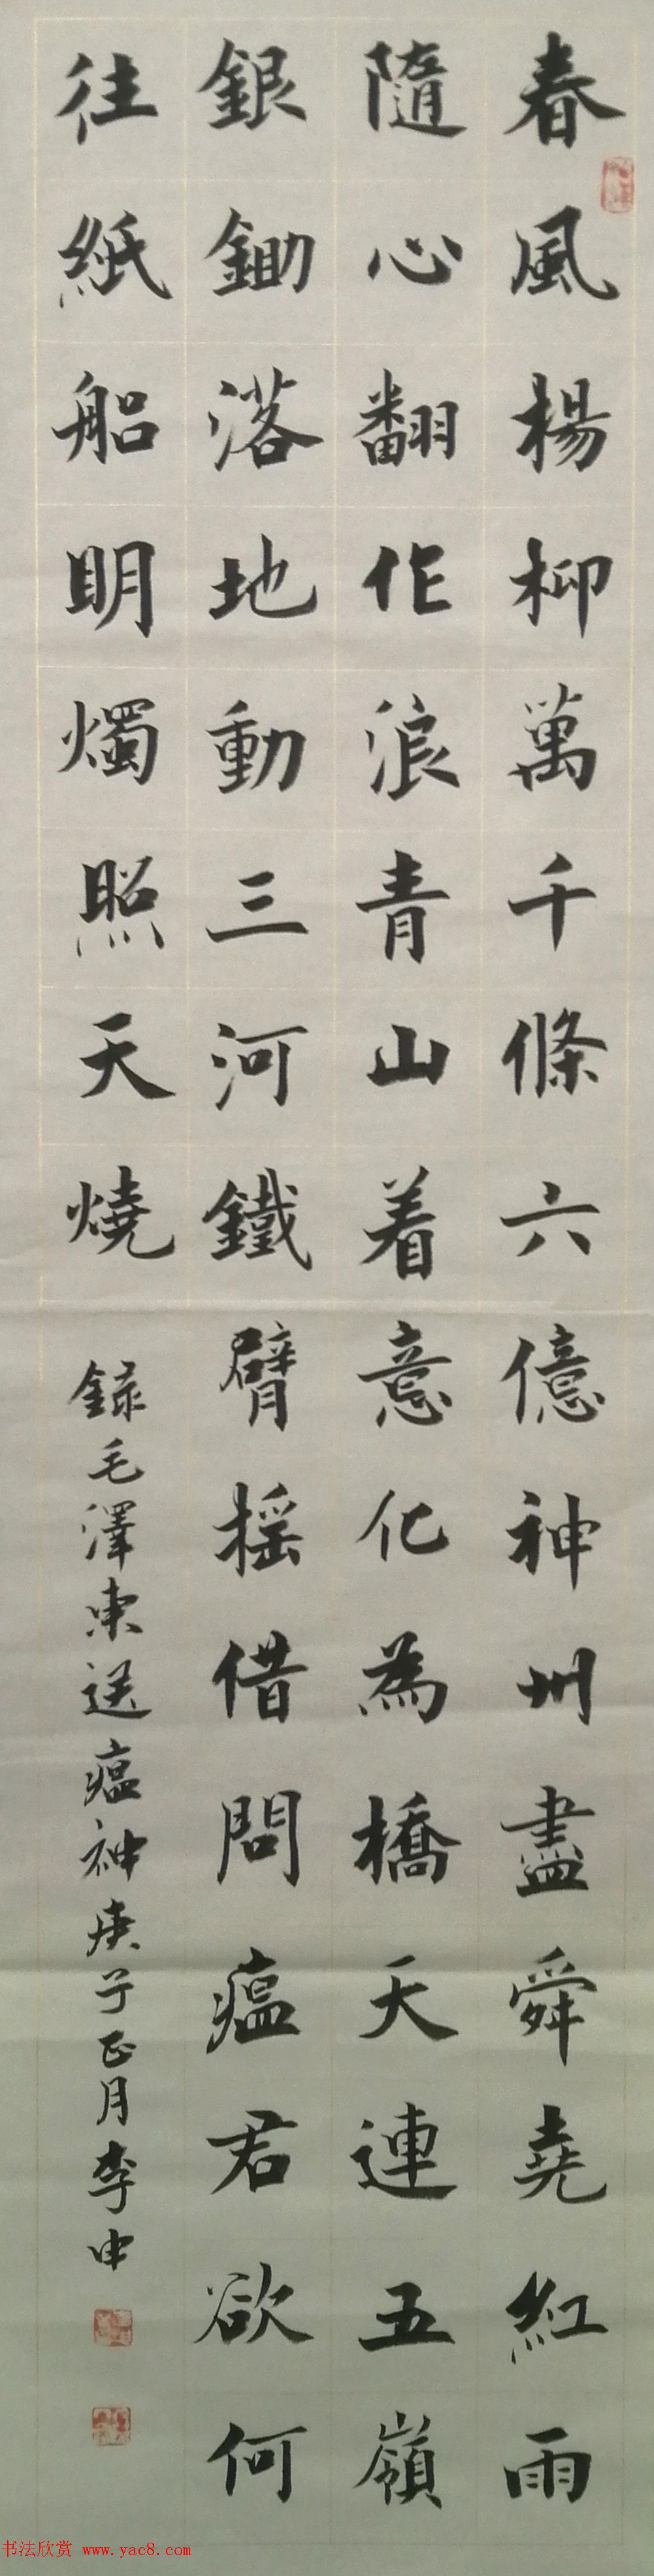 春風楊柳萬千條六億神州盡舜堯紅雨
隨心翻作浪青山着意化為橋天連五嶺
銀鋤落地動三河鐵臂摇借問瘟君欲何
往紙船明燭照天燒
録毛澤東送瘟神庚子正月李申
书法欣赏 www.yac8.com